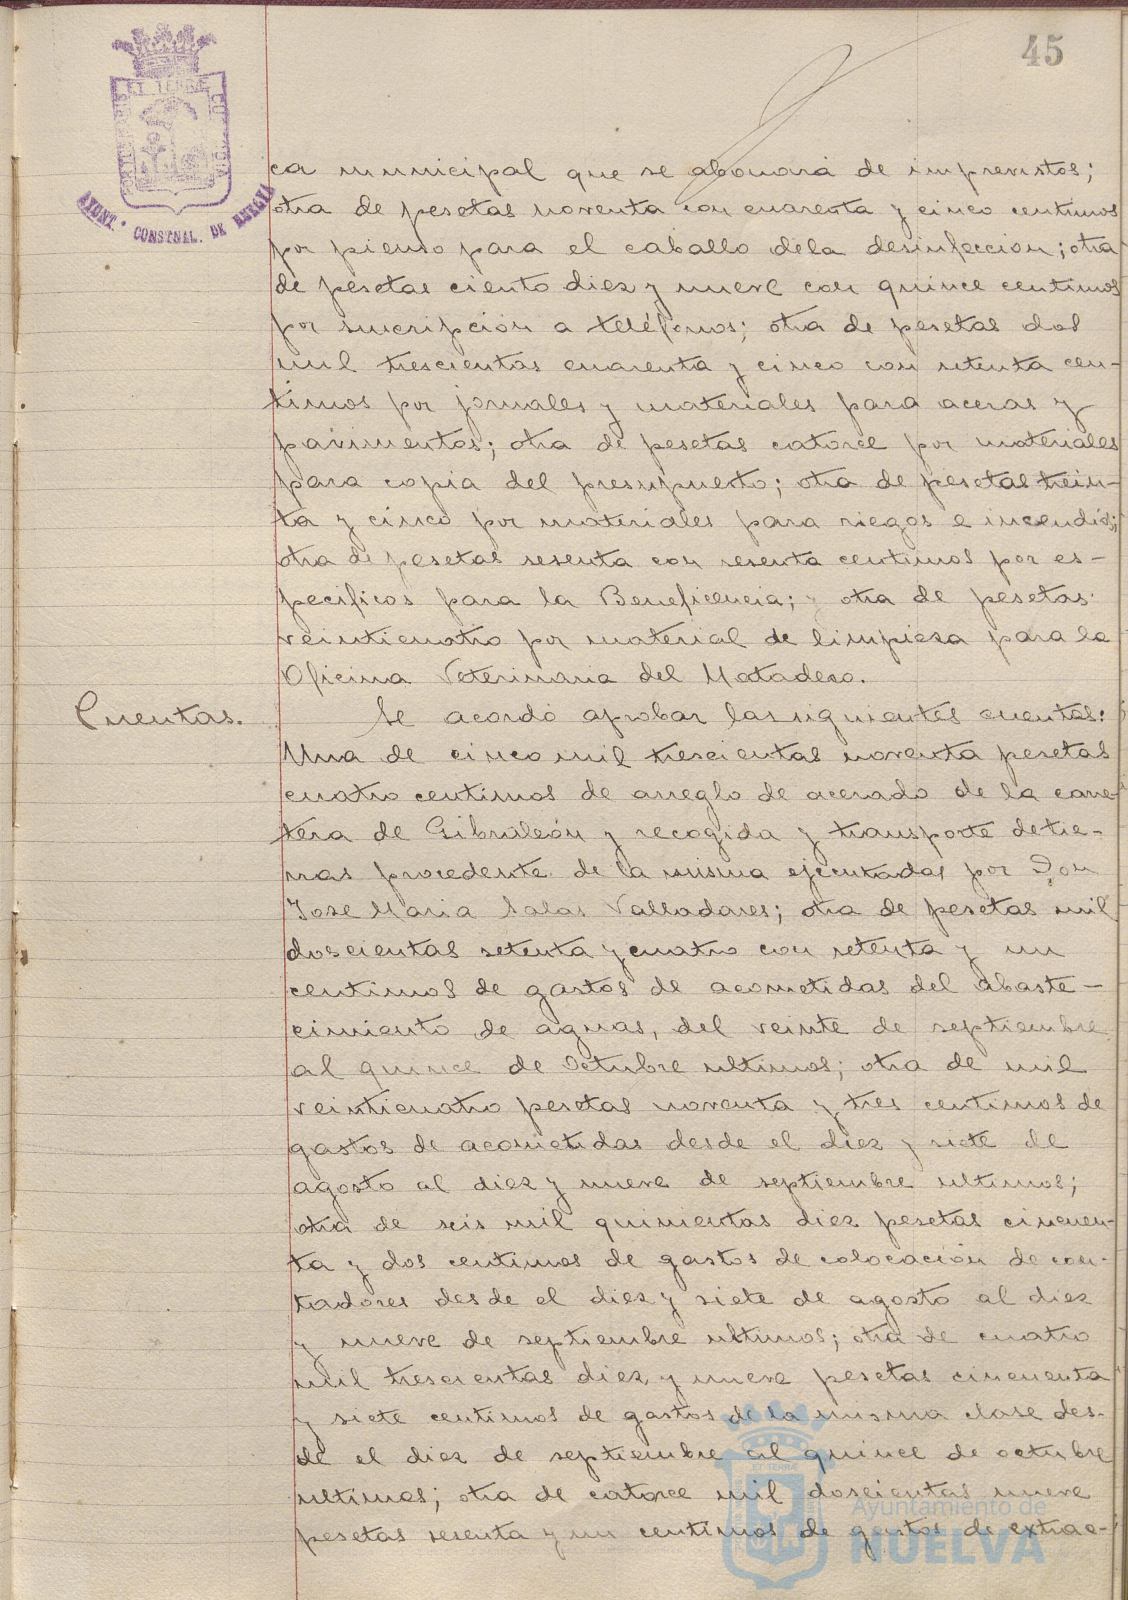 45
ET TERRÆ
AYUNT. CONSTNAL. DE HUELVA
ca municipal que se abonará de imprevistos;
otra de pesetas noventa con cuarenta y cinco centimos
por pienso para el caballo dela desinfeccion; otra
de pesetas ciento diez y nueve con quince centimos
por suscripción a teléfonos; otra de pesetas dos
mil trescientas cuarenta y cinco con setenta cen-
timos por jornales y materiales para aceras y
pavimentos; otra de pesetas catorce por materiales
para copia del presupuesto; otra de pesetas trein-
ta y cinco por materiales para riegos e incendios;
otra de pesetas sesenta con sesenta centimos por es-
pecificos para la Beneficencia; y otra de pesetas
veinticuatro por material de limpieza para la
Oficina Veterinaria del Matadero.
Cuentas.
Se acordó aprobar las siguientes cuentas:
Una de cinco mil trescientas noventa pesetas
cuatro centimos de arreglo de acerado de la carre
tera de Gibraleón y recogida y transporte de tie-
rras procedente de la misma ejecutadas por Don
Jose Maria Salas Valladares; otra de pesetas mil
doscientas setenta y cuatro con setenta y un
centimos de gastos de acometidas del abaste-
cimiento de aguas, del veinte de septiembre
al quince de Octubre ultimos; otra de mil
veinticuatro pesetas noventa y tres centimos de
gastos de acometidas desde el diez y siete de
agosto al diez y nueve de septiembre ultimos;
otra de seis mil quinientas diez pesetas cincuen-
ta y dos centimos de gastos de colocación de con-
tadores desde el diez y siete de agosto al diez
y nueve de septiembre ultimos; otra de cuatro
mil trescientas diez y nueve pesetas cincuenta
y siete centimos de gastos de la misma clase des-
de el diez de septiembre al quince de octubre
ultimos; otra de catorce mil doscientas nueve
pesetas sesenta y un centimos de gastos de extrac-
Ayuntamiento de
HUELVA